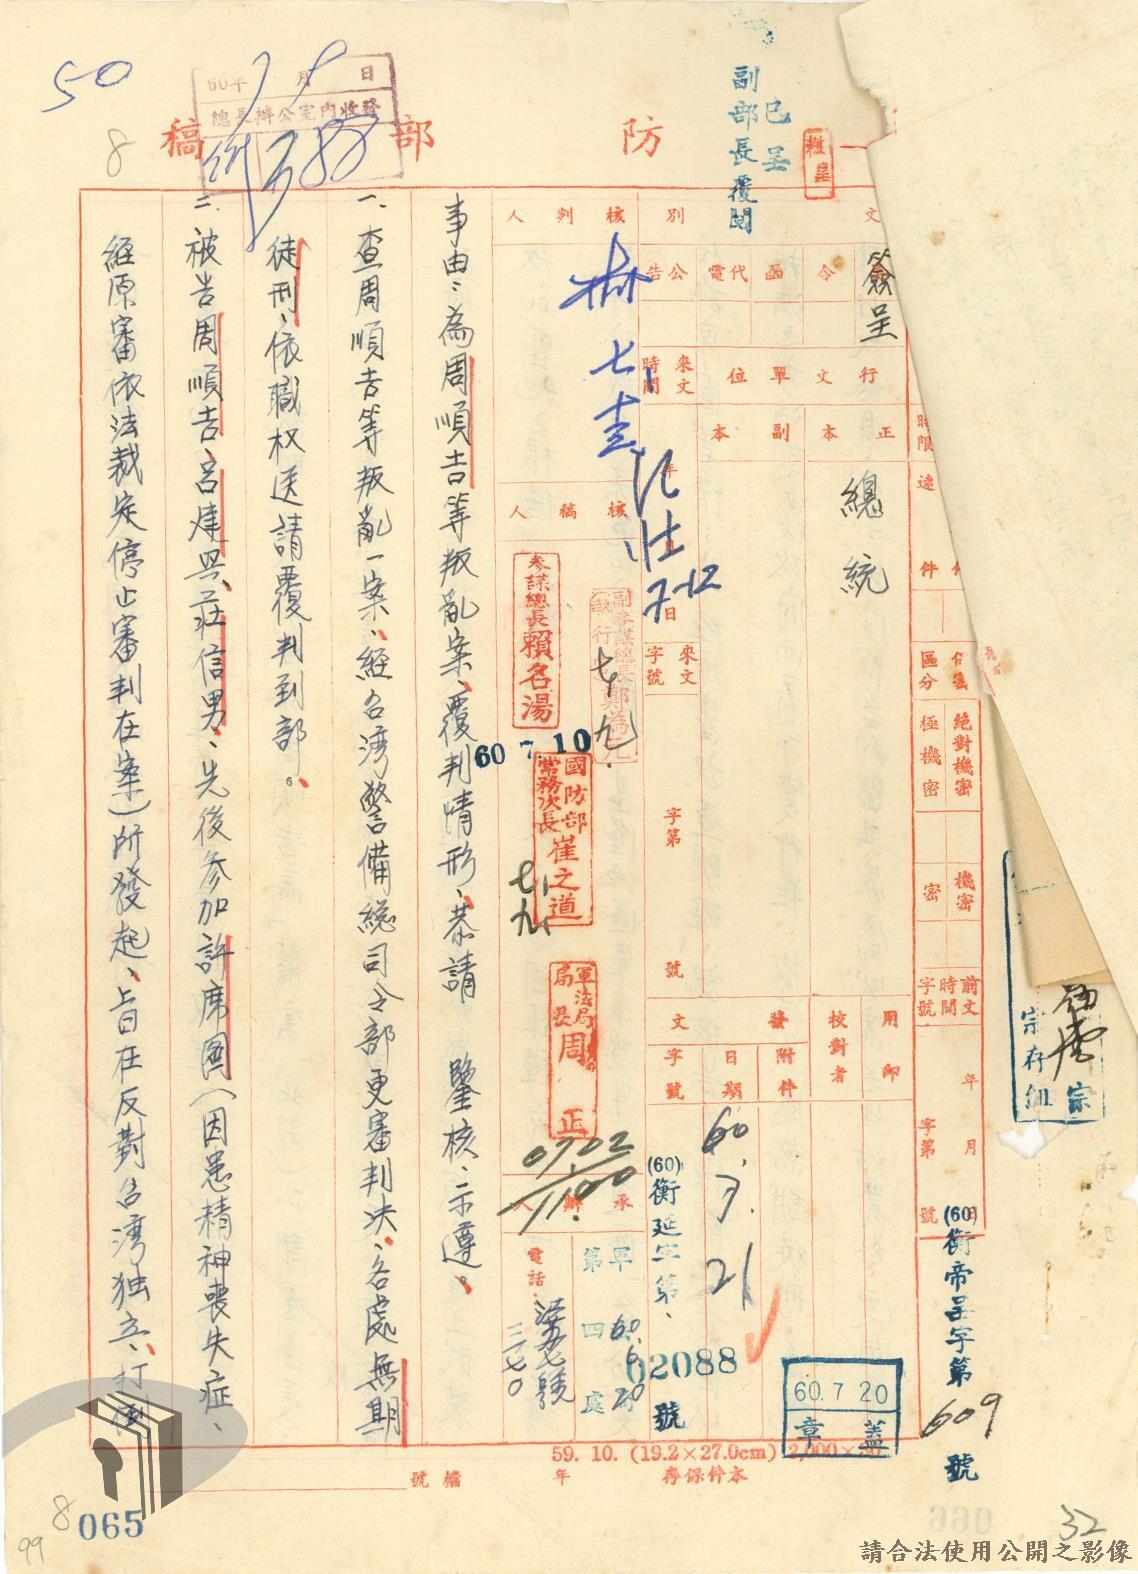 50
8
防部稿
60年 月 日
總長辦公室內收發
已呈
副部長覆閱
文別
簽呈
令
函
代電
公告
核判人
行文單位
正本
副本
來文時間
年
日
7-12
總統
來文字號
字第
號
時限
速件
區分
絕對機密
極機密
機密
密
前文時間字號
年
月
字第
號
(60)衡帝呈字第609號
用印
校對者
發文
附件
日期
字號
60.7.21
(60)衡延字第62088號
60.7 20
蓋章
核稿人
副參謀總長(執行)鄭為元
七九
參謀總長賴名湯
60 7.10
國防部常務次長崔之道
七九
軍法局局長周正
0702
1100
承辦人
第四處
電話
三一七〇
事由:為周順吉等叛亂案、覆判情形、恭請 鑒核、示遵。
一、查周順吉等叛亂一案、經台灣警備總司令部更審判決、各處無期
徒刑、依職权送請覆判到部。
二、被告周順吉、呂建興、莊信男、先後參加許席圖(因患精神喪失症、
經原審依法裁定停止審判在案)所發起、旨在反對台灣独立、打倒
59. 10. (19.2×27.0cm) 2,000×50
本件保存 年
檔號
宗存組
宗
8
065
99
32
請合法使用公開之影像